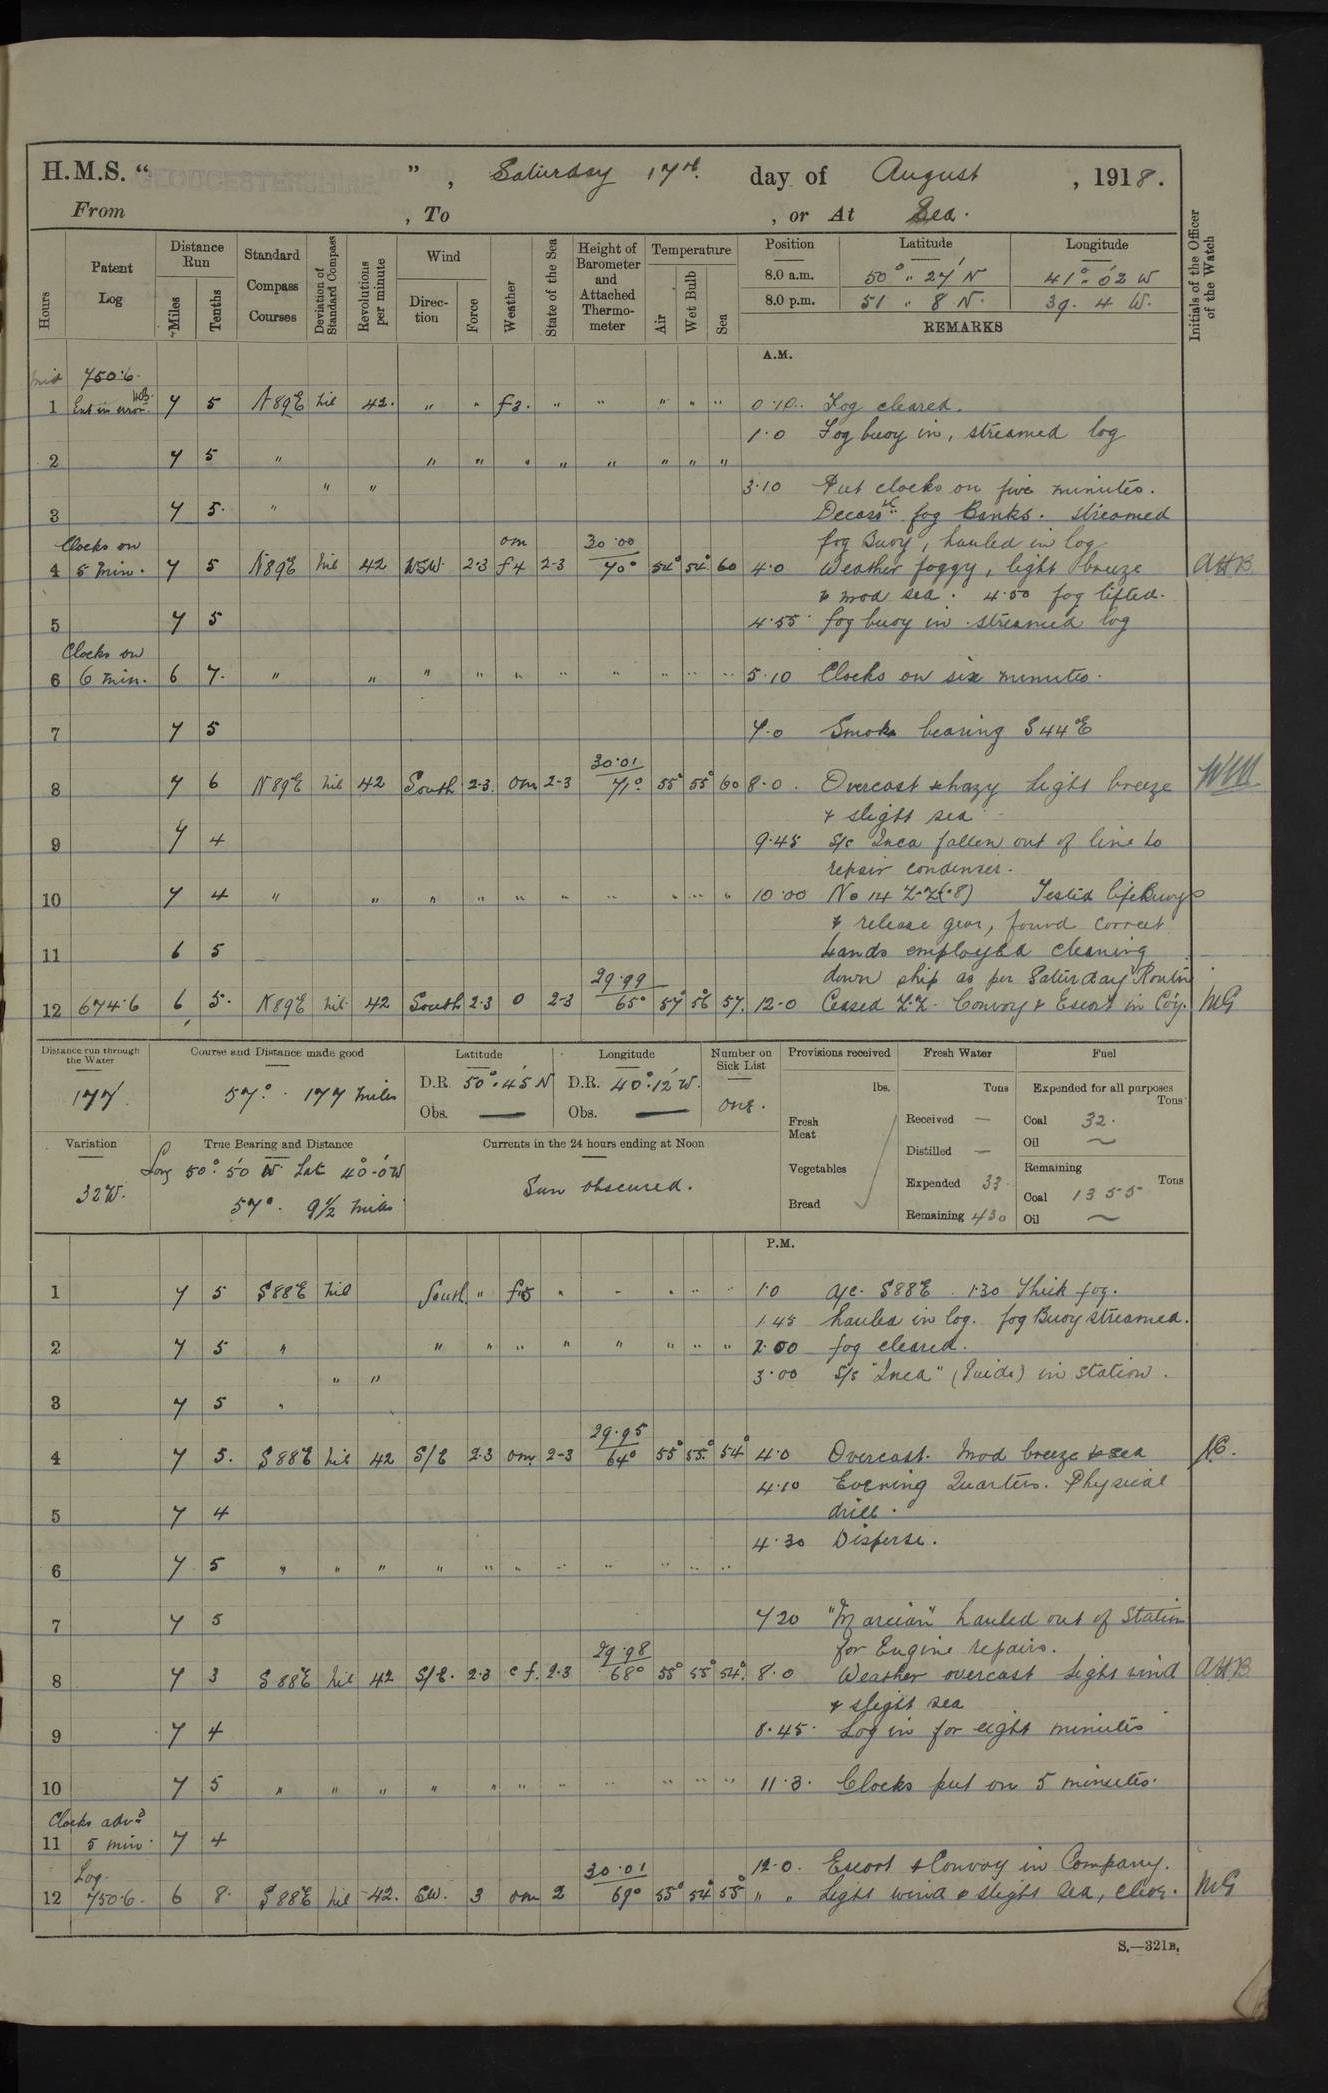 H.M.S. " ", Saturday 17th. day of August, 1918.
From , To , or At Sea.
Hours
Patent Log
Distance Run
Miles
Tenths
Standard Compass Courses
Deviation of Standard Compass
Revolutions per minute
Wind
Direction
Force
Weather
State of the Sea
Height of Barometer and Attached Thermometer
Temperature
Air
Wet Bulb
Sea
Position Latitude Longitude
8.0 a.m. 50° 27' N 41° 02' W
8.0 p.m. 51 " 8 N. 39. 4 W.
REMARKS
Initials of the Officer of the Watch
A.M.
mid 750.6
1 Ent in error 7 5 N89E nil 42. " " f3. " " " " " 0.10. Fog cleared.
1.0 Fog buoy in, streamed log
2 7 5 " " " " " " " " "
" " 3.10 Put clocks on five minutes.
3 7 5. " Occasl fog Banks. streamed
Clocks on om 30.00 fog Buoy, hauled in log.
4 5 min. 7 5 N89E nil 42 WSW. 2.3 f4 2-3 70° 54° 54° 60 4.0 Weather foggy, light breeze AHB
& mod sea. 4.50 fog lifted.
5 7 5 4.55 fog buoy in streamed log
Clocks on
6 6 min. 6 7. " " " " " " " " " " 5.10 Clocks on six minutes.
7 7 5 7.0 Smoke bearing S44E
30.01
8 7 6 N89E nil 42 South 2-3. om 2-3 71° 55° 55° 60 8.0. Overcast & hazy Light breeze
& slight sea
9 7 4 9.45 S/s Inca fallen out of line to
repair condenser.
10 7 4 " " " " " " " " " " 10.00 No 14 Z.Z(.8) Tested lifeBuoys
& release gear, found correct
11 6 5 hands employed cleaning
29.99 down ship as per Saturday Routine
12 674.6 6 5. N89E nil 42 South 2.3 o 2-3 65° 57° 56° 57. 12-0 Ceased Z.Z. Convoy & Escort in Coy. MG
Distance run through the Water
177
Course and Distance made good
57°. 177 miles
Latitude
D.R. 50°.45' N
Obs. —
Longitude
D.R. 40°.12' W.
Obs. —
Number on Sick List
one.
Provisions received
lbs.
Fresh Meat
Vegetables
Bread
Fresh Water
Tons
Received —
Distilled —
Expended 33
Remaining 430
Fuel
Expended for all purposes
Tons
Coal 32.
Oil ~
Remaining
Tons
Coal 1355
Oil ~
Variation
32W.
True Bearing and Distance
Long 50°.50' W. Lat 40°-0' W
57°. 9½ miles
Currents in the 24 hours ending at Noon
Sun obscured.
P.M.
1 7 5 S88E nil South " f5 " " " " " 1.0 a/c. S88E. 1.30 Thick fog.
1.45 hauled in log. fog Buoy streamed.
2 7 5 " " " " " " " " " 2.00 fog cleared.
" " 3.00 S/s "Inca" (Guide) in station.
3 7 5 "
29.95
4 7 5. S88E nil 42 S/E 2.3 om 2-3 64° 55° 55° 54° 4.0 Overcast. Mod breeze & sea
4.10 Evening Quarters. Physical
5 7 4 drill.
4.30 Disperse.
6 7 5 " " " " " " " " " " "
7 7 5 7.20 "Marcian" hauled out of Station
29.98 for Engine repairs.
8 7 3 S88E nil 42 S/E. 2.3 c f. 2.3 68° 55° 55° 54° 8.0 Weather overcast Light wind AHB
& slight sea
9 7 4 8.45. Log in for eight minutes
10 7 5 " " " " " " " " " " " 11.3. Clocks put on 5 minutes.
Clocks advd
11 5 min. 7 4
Log. 30.01 12.0. Escort & Convoy in Company.
12 750.6. 6 8. S88E nil 42. SW. 3 om 2 69° 55° 54° 55° " " Light wind & slight sea, clear. MG
S.—321B.